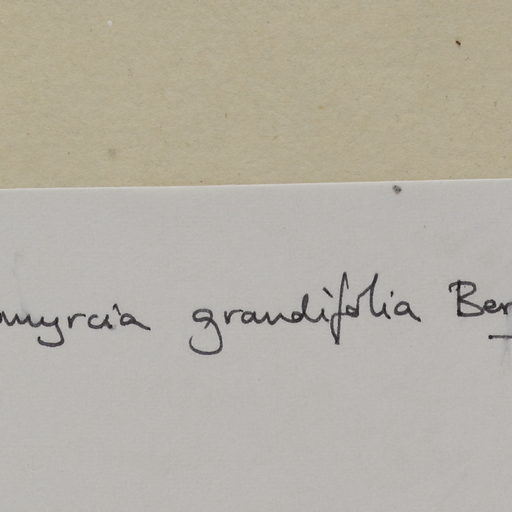 omyrcia grandifolia Ber